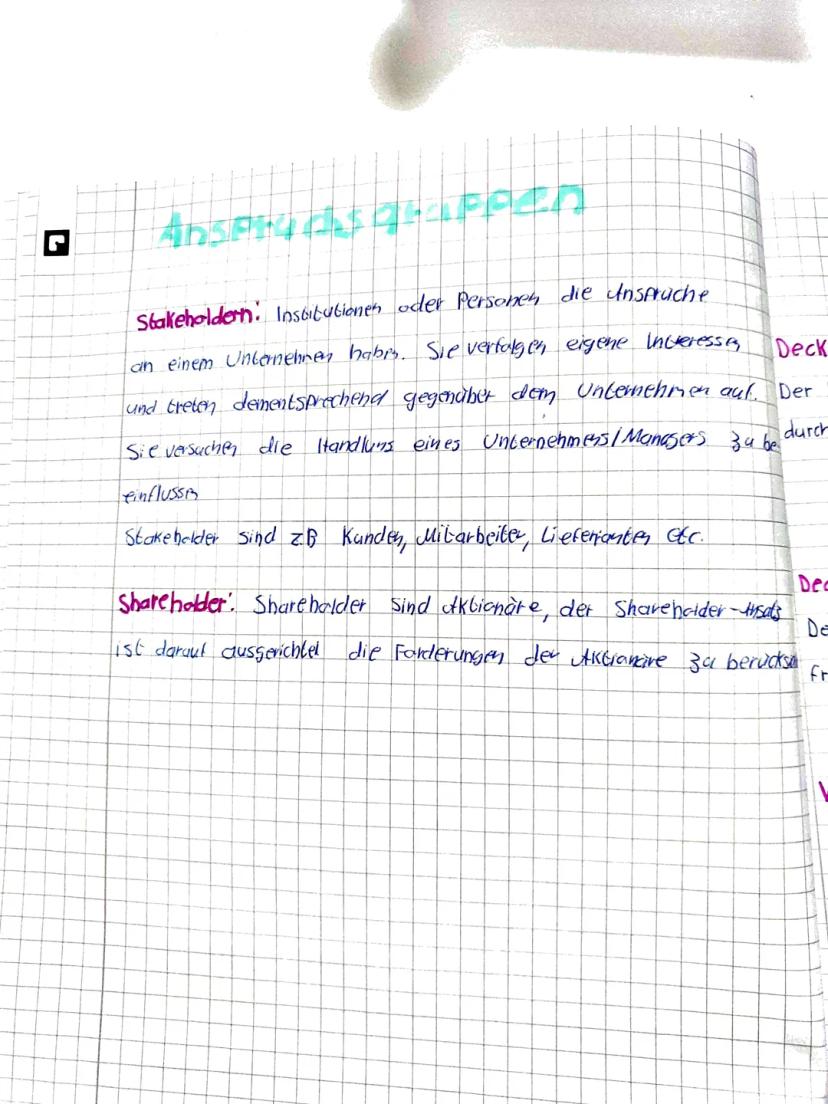 Anspruchsgruppen
Stakeholdern: Institutionen oder Personen die Ansprüche
an einem Unternehmen haben. Sie verfolgen eigene Interessen
und treten dementsprechend gegenüber dem Unternehmen auf.
Sie versuchen die Handlung eines Unternehmens/Managers zu be
einflussen
Stakeholder sind z.B Kunden, Mitarbeiter, Lieferanten etc.
Shareholder: Shareholder sind Aktionäre, der Shareholder-Ansatz
ist darauf ausgerichtet die Forderungen der Aktionäre zu berücksi
Deck
Der
durch
Dec
De
fr